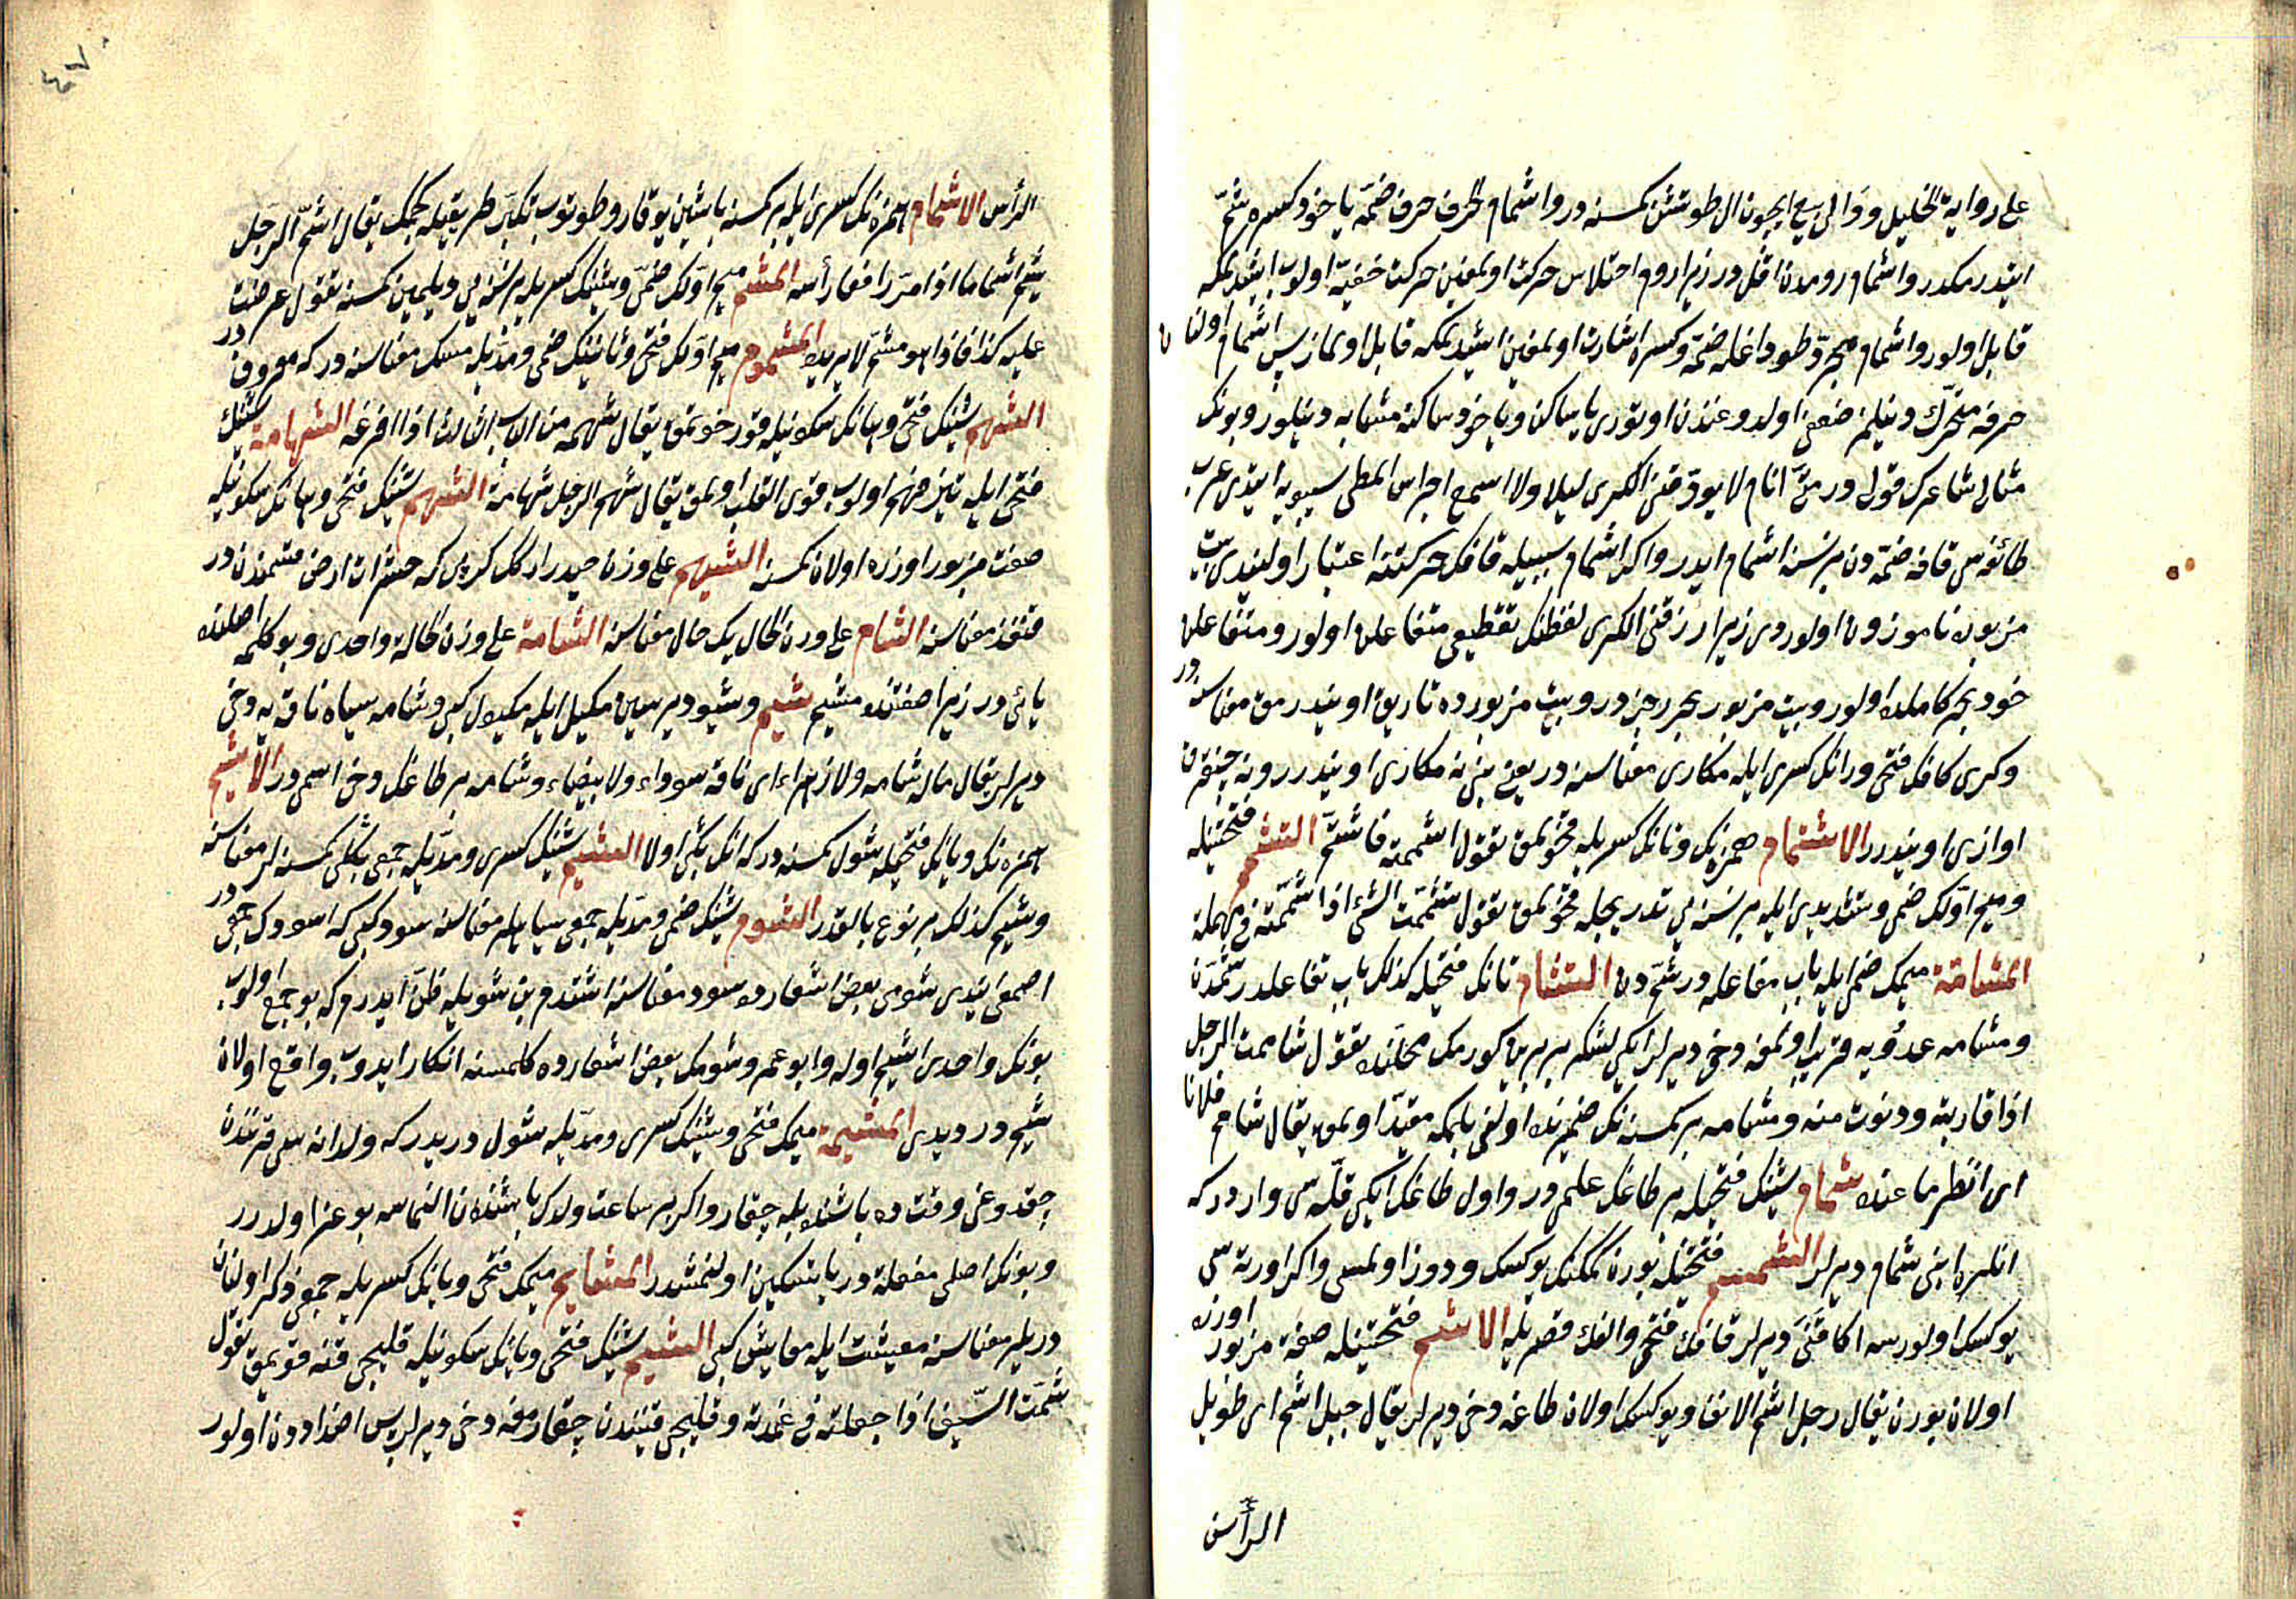 على رواية الخليل ووالى بيع ايچون ال طوتشن كمسنه در واشمام الحرف حرف ضمّه ياخود كسره شمّ
ايتدرمكدر واشمام رومدن اقل در زيرا روم واختلاس حركت اولمغين حركت خفيّة اولوب ايشدلمكه
قابل اولور واشمام مجرّد طوداغله ضمّه وكسره اشارت اولمغين ايشدلمكه قابل اولماز پس اشمام اولنان
حرفه متحرّك دينلمز ضعفى اولدوغندن اوتورى يا ساكن وياخود ساكنه مشابه دينلور وبونك
مثالى شاعرك قولى در متى انام لا يورّقنى الكرى ليلا ولا اسمع اجراس المطى سيبويه ايتدى عرب
طائفه سى قافه ضمّه دن بر نسنه اشمام ايدر واكر اشمام سببيله قافك حركتنه اعتبار اولنيدى بيت
مزبوره ناموزون اولوردى زيرا رّقنى الكرى لفظنك تقطيعى متفاعلن اولور ومتفاعلن
خود بحر كاملده اولور وبيت مزبور بحر رجزدر وبيت مزبورده تاريق اويندرمق معناسنه در
وكرى كافك فتحى ورانك كسرى ايله مكارى معناسنه در يعنى بنى نه مكارى اويندرر ونه چنغرق
اوازى اويندرر الاشتمام همزه نك وتانك كسريله قخولمق تقول اشممته فاشتمّ التشمم فتحتينله
وميم اوّلك ضمى وتشديدى ايله بر نسنه يى تدريجله قخولمق تقول تشمّمت الشئ اذا شممته فى مهلة
المشامّة ميمك ضمى ايله باب مفاعله در شمّ دن التشام تانك فتحيله كذلك باب تفاعلدر شمّدن
ومشامه عدوّيه قريب اولمغه دخى ديرلر ايكى لشكر بر برين كورمك محلنده تقول شاممت الرجل
اذا قاربته ودنوت منه ومشامه بر كمسنه نك ضميرنده اولنى بلمكه مقيّد اولمق يقال شامم فلانا
اى انظر ما عنده شمام شينك فتحيله بر طاغك علمى در واول طاغك ايكى قلّه سى واردر كه
انلره ابنى شمام ديرلر الشمم فتحتينله بورن كمكنك يوكسك ودوز اولمسى واكر اورته سى
يوكسك اولورسه اكا قنى ديرلر قافك فتحى والفك قصريله الاشم فتحتينله صفة مزبور اوزره
اولان بورن يقال رجل اشم الانف ويوكسك اولان طاغه دخى ديرلر يقال جبل اشم اى طويل
الرأس
٤٧
الرأس الاشمام همزه نك كسرى ايله بر كمسنه باشين يوقارو طوتوب تكبّر طريقيله كچمك يقال اشمّ الرجل
يشمّ اشماما اذا مرّ رافعا رأسه المشم ميم اوّلك ضمّى وشينك كسريله بر نسنه يى ديلمين كمسنه تقول عرضت
عليه كذا فاذا هو مشمّ لا يريده المشموم ميم اوّلك فتحى وثانينك ضمى ومدّيله مسك معناسنه در كه معروفدر
الشهم شينك فتحى وهانك سكونيله قورخوتمق يقال شهمه من الباب الثالث اذا افزعه الشهامة شينك
فتحى ايله تيز فهم اولوب قوى القلب اولمق يقال شهم الرجل شهامة الشهم شينك فتحى وهانك سكونيله
صفت مزبور اوزره اولان كمسنه الشيهم على وزن حيدر اركك كرپى كه حشرات ارض قسمندن در
قنفذ معناسنه الشام على وزن الخال بك خال معناسنه الشامة على وزن الخالة واحدى وبو كلمه اصلنده
يائى در زيرا صفتنده مشيم شيم وشيوم ديرسين مكيل ايله مكيول كبى وشامه سياه ناقه يه دخى
ديرلر يقال ماله شامه ولا زهراء اى ناقه سوداء ولا بيضاء وشامه بر طاغك دخى اسمى در الاشيم
همزه نك ويانك فتحيله شول كمسنه در كه انك بكى اولا الشيم شينك كسرى ومدّيله جمعى بكلى كمسنه لر معناسنه
وشيم كذلك بر نوع بالقدر الشوم شينك ضمى ومدّيله جمعى سياهلر معناسنه سود كبى كه اسودك جمعى در
اصمعى ايتدى شومى بعض اشعارده سود معناسنه اشتدم بن شويله ظنّ ايدرم كه بو جمع اولوب
بونك واحدى اشيم اوله وابو عمرو شومك بعض اشعارده كلمسنه انكار ايدوب واقع اولان
شيم در ديدى المشيمة ميمك فتحى وشينك كسرى ومدّيله شول دريدر كه ولد انه سى قرنندن
چقدوغى وقت ده باشنده بله چقار واكر بر ساعت ولدك باشندن النماسه بوغز اولدرر
وبونك اصلى مفعلة در يا تسكين اولنمشدر المشايم ميمك فتحى ويانك كسريله جمعى ذكر اولنان
دريلر معناسنه معيشت ايله معايش كبى الشيم شينك فتحى ويانك سكونيله قليجى قننه قويمق تقول
شمت السيف اذا جعلته فى غمده وقليجى قنندن چقارمغه دخى ديرلر پس اضداددن اولور